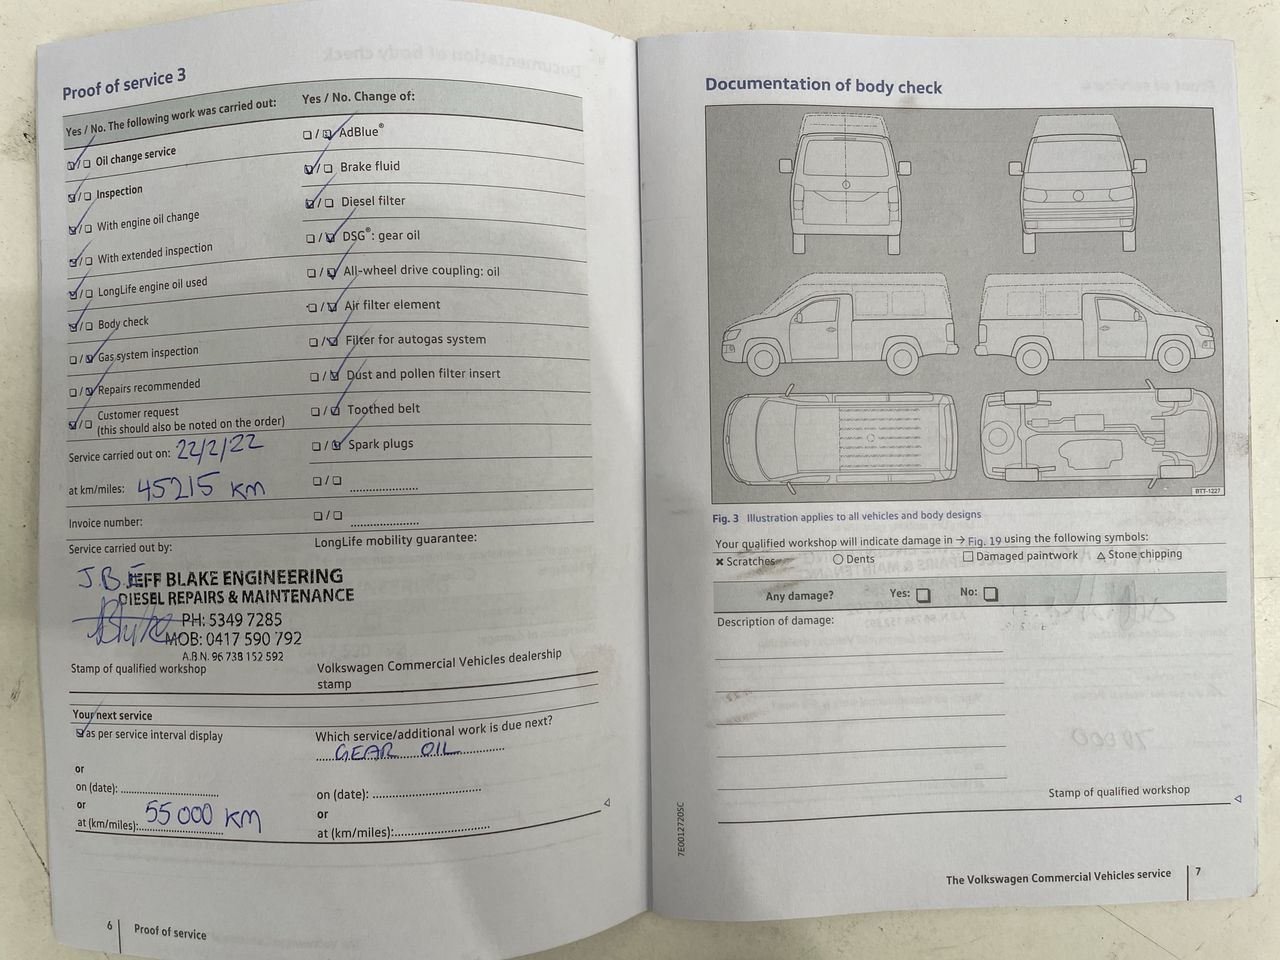 Proof of service 3
Yes / No. The following work was carried out:
Oil change service
Inspection
With engine oil change
With extended inspection
LongLife engine oil used
Body check
Gas system inspection
Repairs recommended
Customer request
(this should also be noted on the order)
Service carried out on: 22/2/22
at km/miles: 45215 KM
Invoice number:
Service carried out by:
Yes / No. Change of:
AdBlue®
Brake fluid
Diesel filter
DSG®: gear oil
All-wheel drive coupling: oil
Air filter element
Filter for autogas system
Dust and pollen filter insert
Toothed belt
Spark plugs
LongLife mobility guarantee:
J.B.E
JEFF BLAKE ENGINEERING
DIESEL REPAIRS & MAINTENANCE
PH: 5349 7285
MOB: 0417 590 792
A.B.N. 96 738 152 592
Stamp of qualified workshop
Volkswagen Commercial Vehicles dealership
stamp
Your next service
as per service interval display
or
on (date):
or
at (km/miles): 55000 KM
Which service/additional work is due next?
GEAR OIL
on (date):
or
at (km/miles):
6 Proof of service
Documentation of body check
BTT-1227
Fig. 3 Illustration applies to all vehicles and body designs
Your qualified workshop will indicate damage in → Fig. 19 using the following symbols:
× Scratches ○ Dents □ Damaged paintwork △ Stone chipping
Any damage? Yes: □ No: □
Description of damage:
Stamp of qualified workshop
7E0012720SC
The Volkswagen Commercial Vehicles service 7